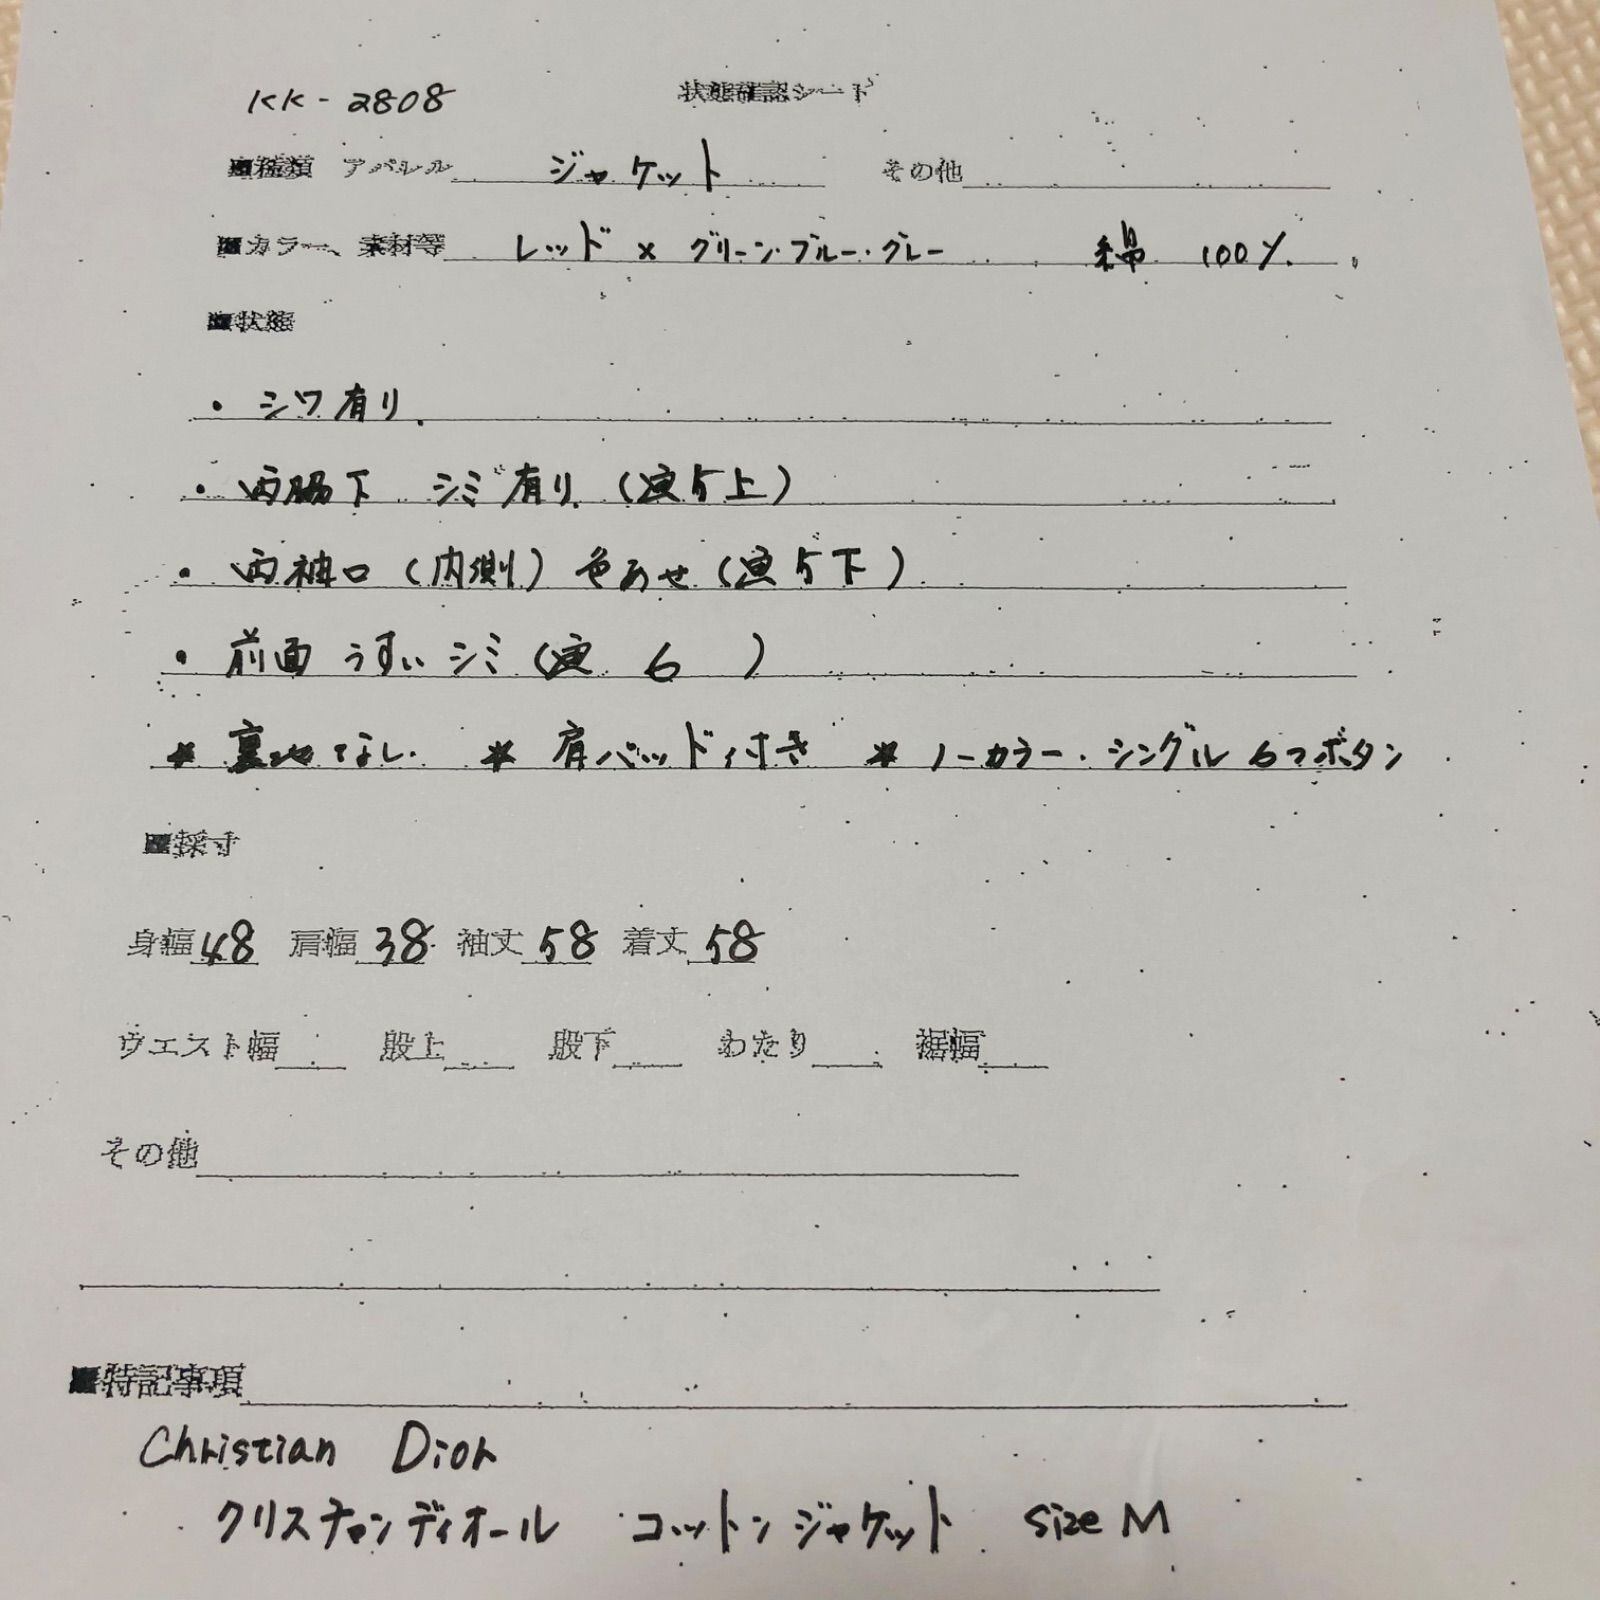 KK-2808 状態確認シート
■種類 アパレル ジャケット その他
■カラー、素材等 レッド × グリーン・ブルー・グレー 綿 100%
■状態
・シワ有り
・両脇下 シミ有り (画5上)
・両袖口 (内側) 色あせ (画5下)
・前面 うすいシミ (画 6 )
* 裏地なし * 肩パッド付き * ノーカラー・シングル 6つボタン
■採寸
身幅 48 肩幅 38 袖丈 58 着丈 58
ウエスト幅 股上 股下 わたり 裾幅
その他
■特記事項
Christian Dior
クリスチャンディオール コットンジャケット size M